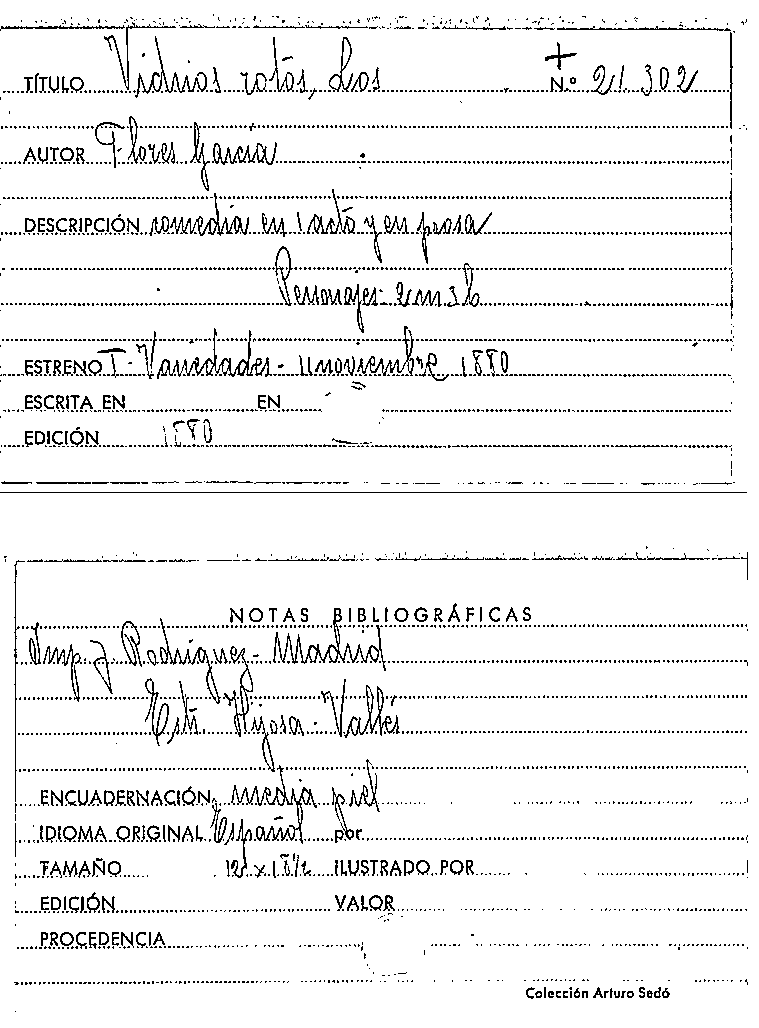 TÍTULO Vidrios rotos, Los
+
N.º 21.302
AUTOR Flores García
DESCRIPCIÓN comedia en 1 acto y en prosa
Personajes- 2m 3h
ESTRENO T. Variedades- 11 noviembre 1880
ESCRITA EN EN
EDICIÓN 1880
NOTAS BIBLIOGRÁFICAS
Imp J. Rodriguez- Madrid
Estr. Hijosa- Vallés
ENCUADERNACIÓN media piel
IDIOMA ORIGINAL Español por
TAMAÑO ILUSTRADO POR
EDICIÓN VALOR
PROCEDENCIA
Colección Arturo Sedó